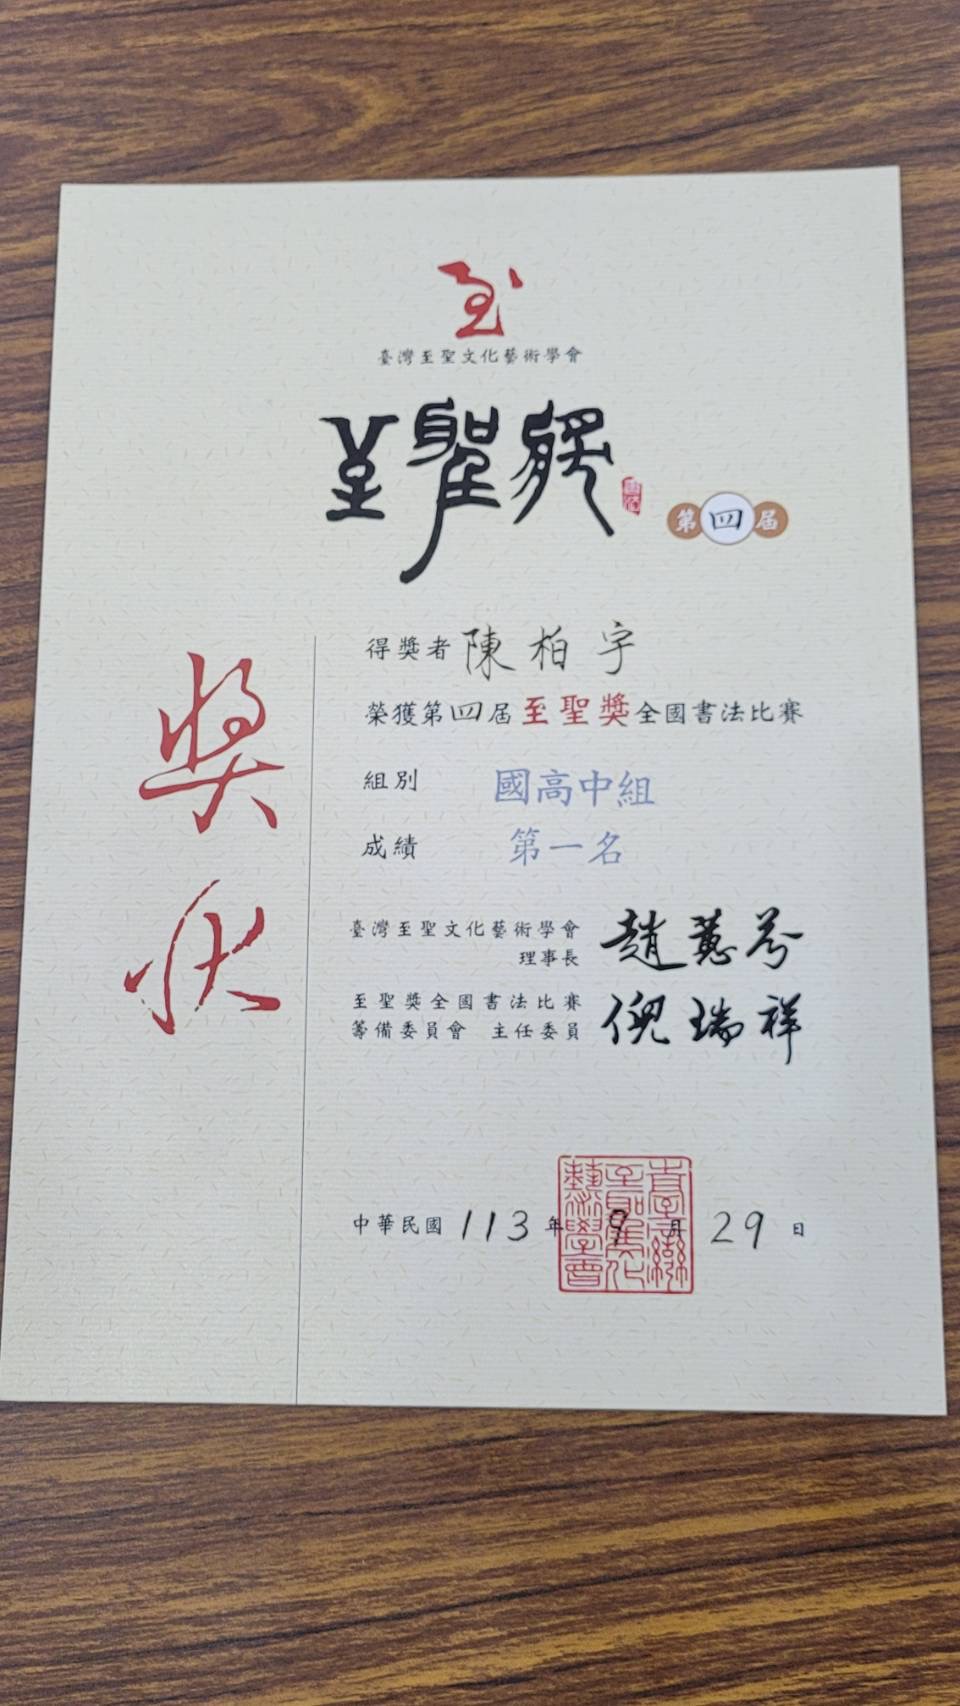 至
臺灣至聖文化藝術學會
至聖獎
第四屆
獎狀
得獎者 陳柏宇
榮獲第四屆至聖獎全國書法比賽
組別 國高中組
成績 第一名
臺灣至聖文化藝術學會
理事長 趙蕙芬
至聖獎全國書法比賽
籌備委員會 主任委員 倪瑞祥
中華民國 113 年 9 月 29 日
臺灣至聖文化藝術學會